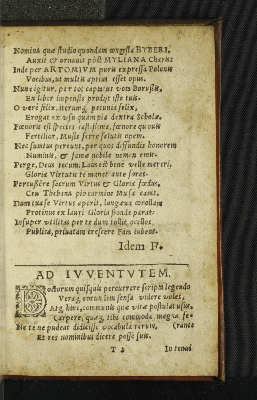 Nomina quæ studio quondam congesta BYBERI,
Auxit & ornavit pòst MYLIANA Cheru:
Inde per ARTOMIVM purè expressa Polonis
Vocibus, ut multis aptius esset opus.
Nunc igitur per tot captus von Borussis,
Ex liber impensis prodijt iste tuis.
O verè felix, iterumq; pecunia felix,
Erogat ex usu quam pia dextra Scholæ.
Fœnoris est species castissima, fœnore quovis
Fertilior, Musis ferre salutis opem.
Nec sumtus pereunt, per quos diffundis honorem
Numinis, & famæ nobile nomen emis.
Perge, Deus tecum: Laus est benè velle mereri,
Gloria Virtuti te manet ante fores.
Percussêre sacrum Virtus & Gloria fœdus,
Ceu Thebana pio carmine Musa canit.
Nam tuæ se Virtus aperit, longævæ corollam
Protinus ex lauri Gloria fronde parat:
Insuper utilitas per te dum tollit, ovesque
Publica, privatam crescere Fam jubent.
Idem F.
AD IVVENTVTEM.
Doctorum quisquis percurrere scripta legendo
Veraq; eorum sensa videre voles,
Atq; hinc, communis quæ vitæ postulat usus,
Carpere, quæq; tibi commoda magna fe-
Ne te ne pudeat didicisse vocabula rerum, (rant:
Et res nominibus dicere posse suis.
T 2 In tenui